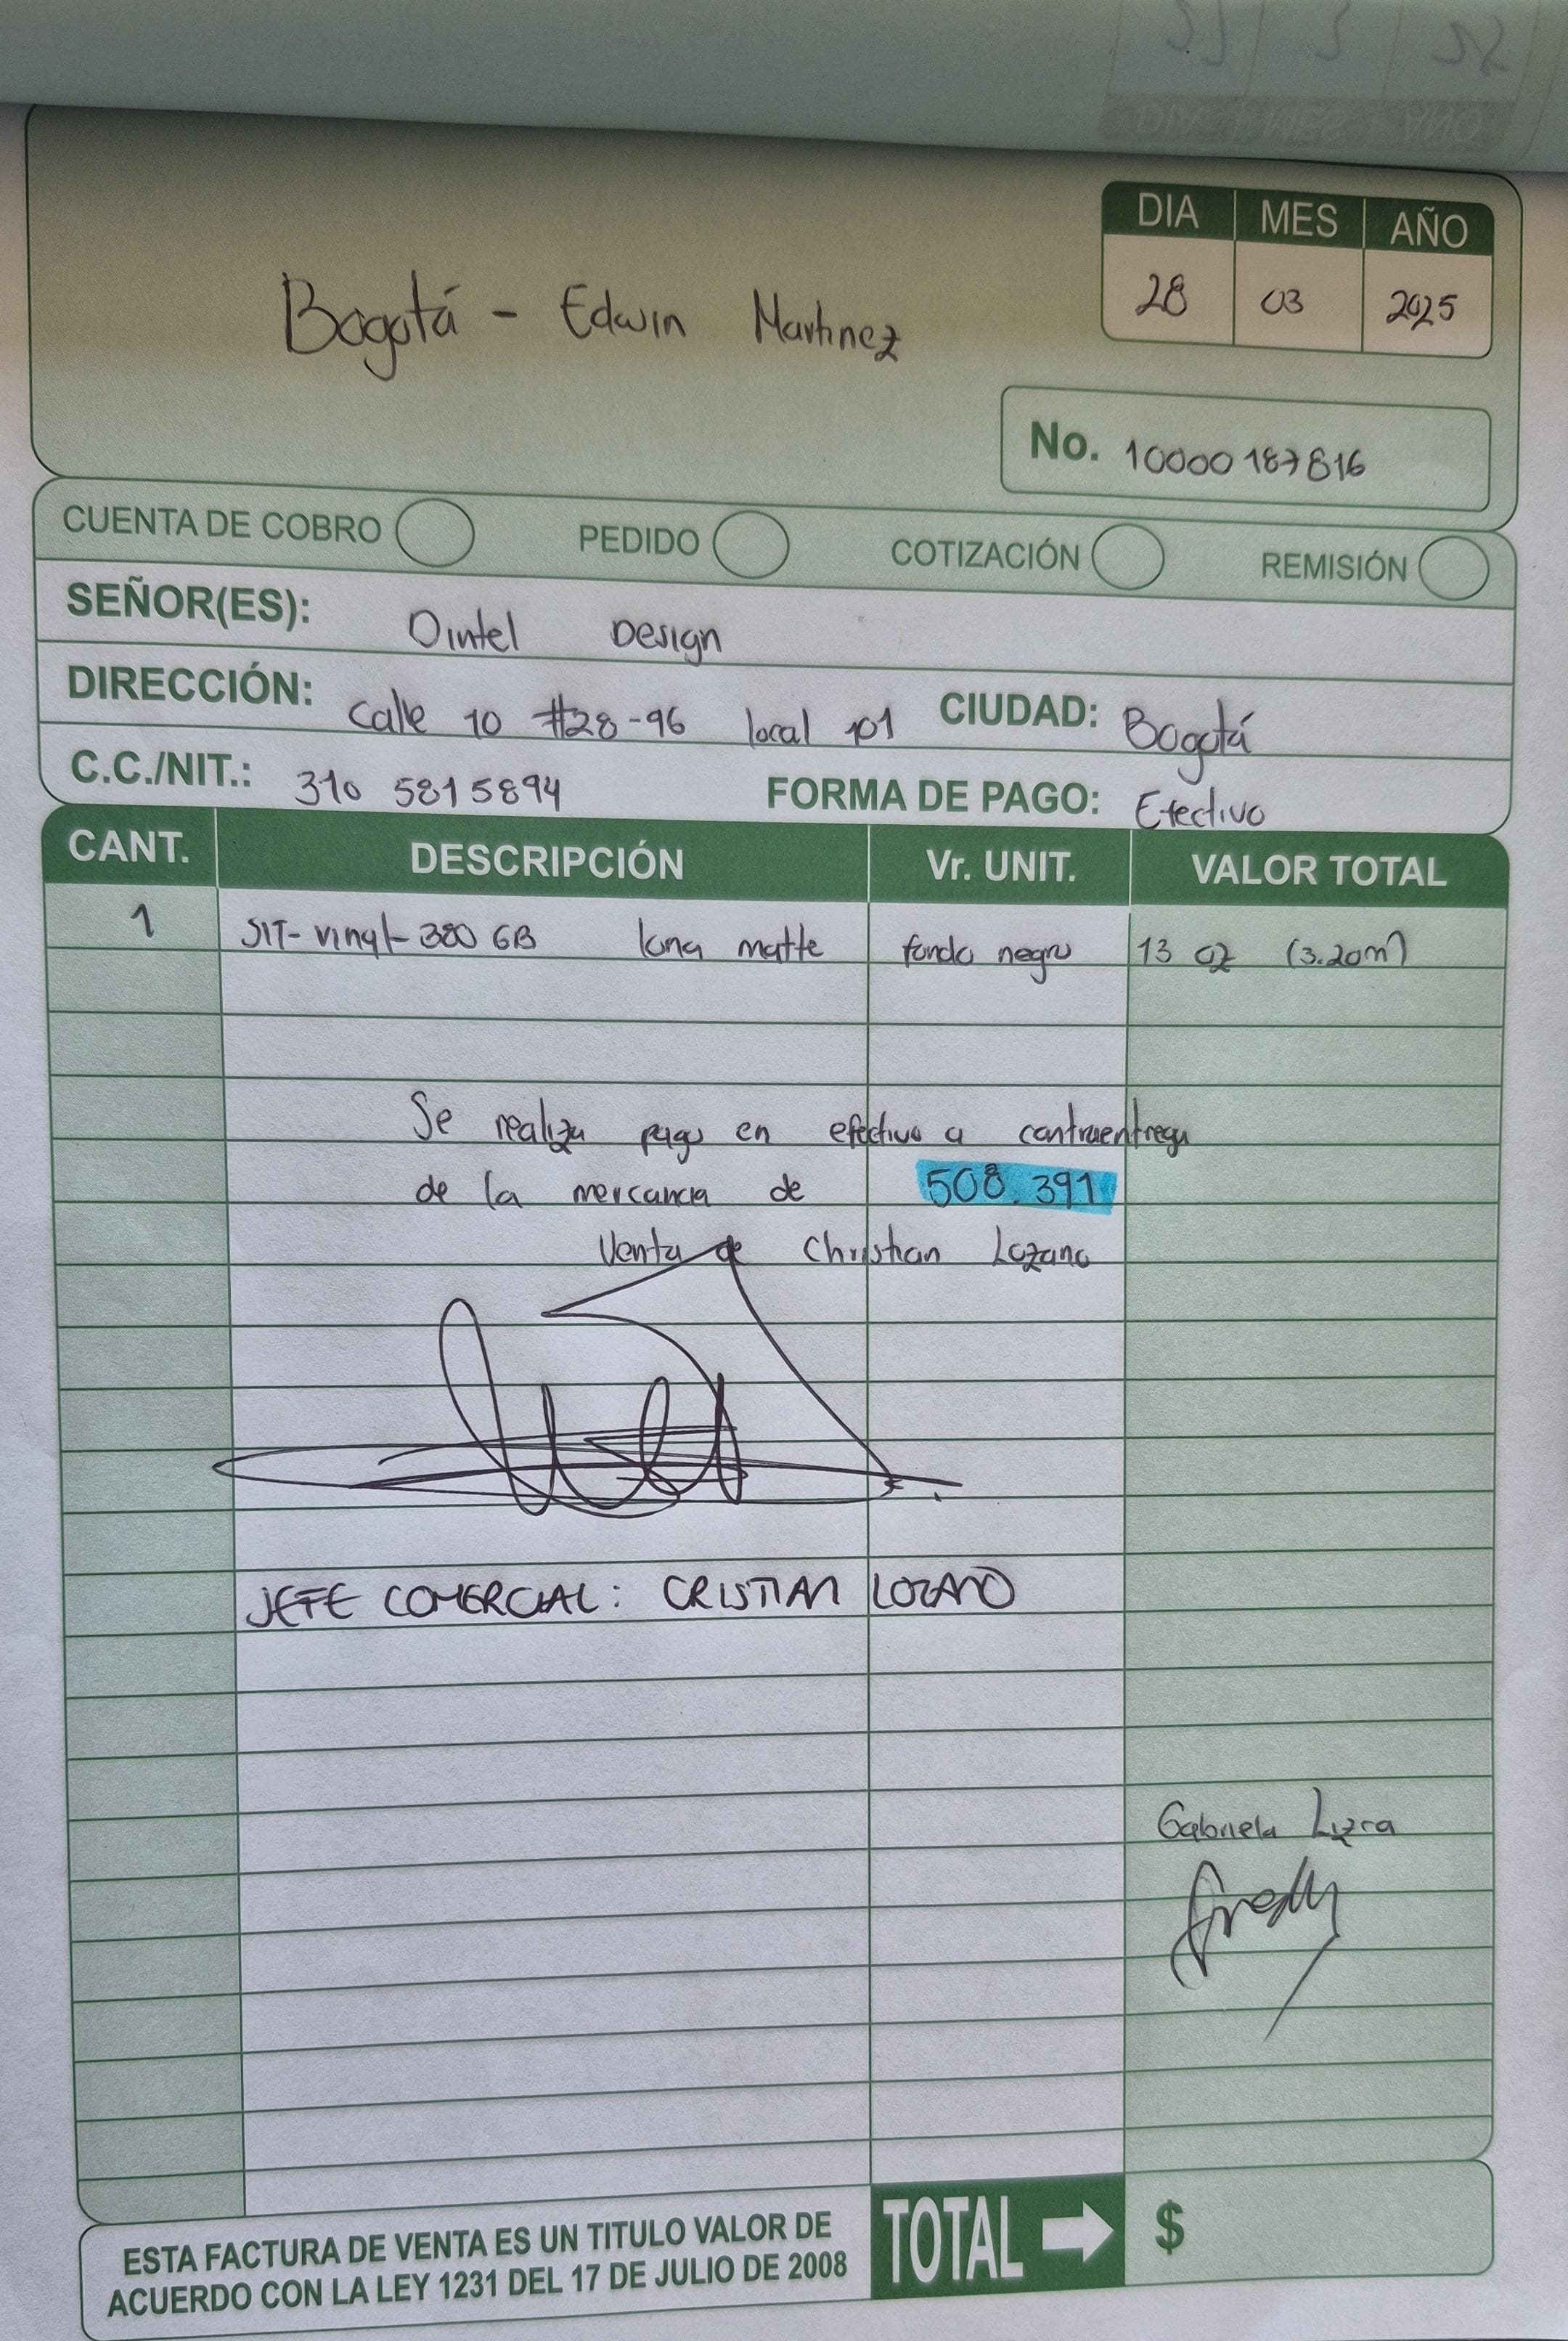 DIA MES AÑO
28 03 2025
Bogotá - Edwin Martinez
No. 10000187816
CUENTA DE COBRO PEDIDO COTIZACIÓN REMISIÓN
SEÑOR(ES): Dintel Design
DIRECCIÓN: Calle 10 #28-96 local 101 CIUDAD: Bogotá
C.C./NIT.: 310 5815894 FORMA DE PAGO: Efectivo
CANT. DESCRIPCIÓN Vr. UNIT. VALOR TOTAL
1 SIT-vinyl-380 GB lona matte fondo negro 13 oz (3.20m)
Se realiza pago en efectivo a contraentrega
de la mercancia de 508.391
Venta de Christian Lozano
JEFE COMERCIAL: CRISTIAN LOZANO
Gabriela
TOTAL $
ESTA FACTURA DE VENTA ES UN TITULO VALOR DE
ACUERDO CON LA LEY 1231 DEL 17 DE JULIO DE 2008